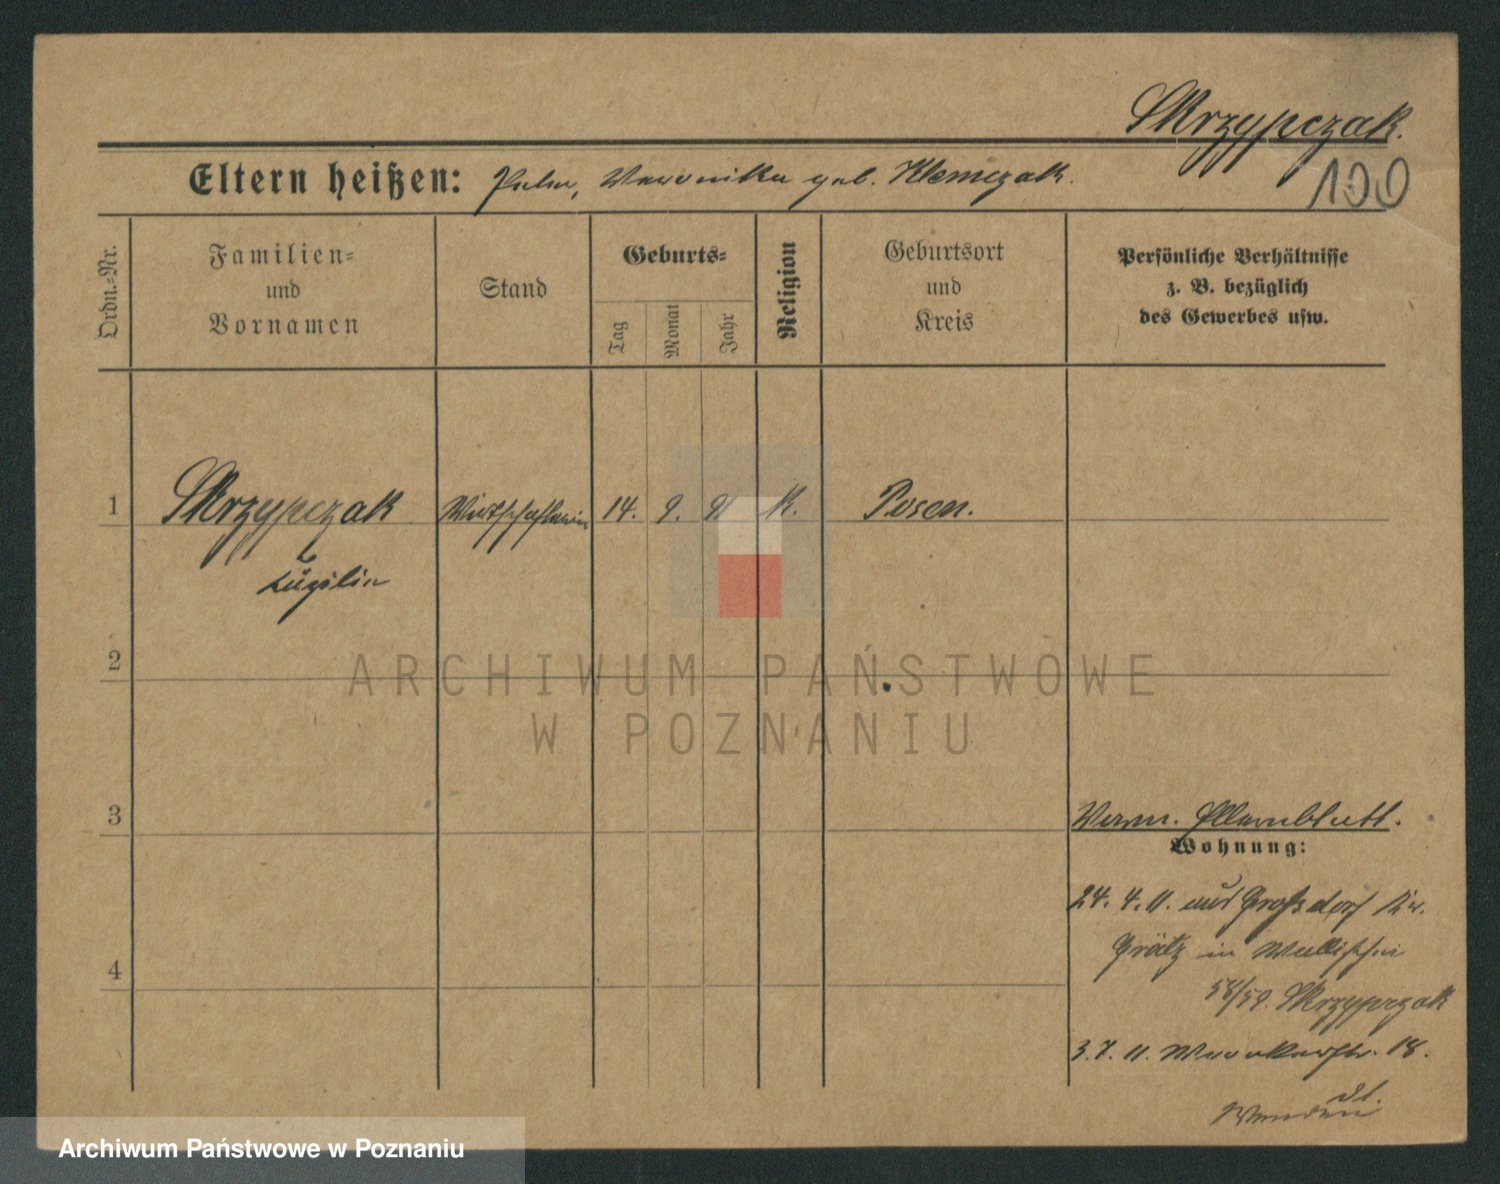 Skrzypczak.
100
Eltern heißen: Veronika geb. Klemczak.
Ordn.-Nr.
Familien-
und
Vornamen
Stand
Geburts-
Tag
Monat
Jahr
Religion
Geburtsort
und
Kreis
Persönliche Verhältnisse
z. B. bezüglich
des Gewerbes usw.
1 Skrzypczak 14. 9. K. Posen.
2
ARCHIWUM PAŃSTWOWE
W POZNANIU
3
Wohnung:
24. 4. 11. aus Großdorf Kr.
4
Grätz in Wallischei
58/59. Skrzypczak
3. 7. 11. 18.
Archiwum Państwowe w Poznaniu